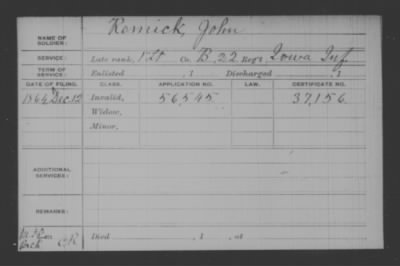 NAME OF SOLDIER: Remick, John
SERVICE: Late rank, Co. B, 22 Reg't Iowa Inf
TERM OF SERVICE: Enlisted , 1 Discharged , 1
DATE OF FILING. CLASS. APPLICATION NO. LAW. CERTIFICATE NO.
1864 Dec. 12 Invalid, 56,545 37,156
Widow,
Minor,
ADDITIONAL SERVICES:
REMARKS:
Died , 1 , at